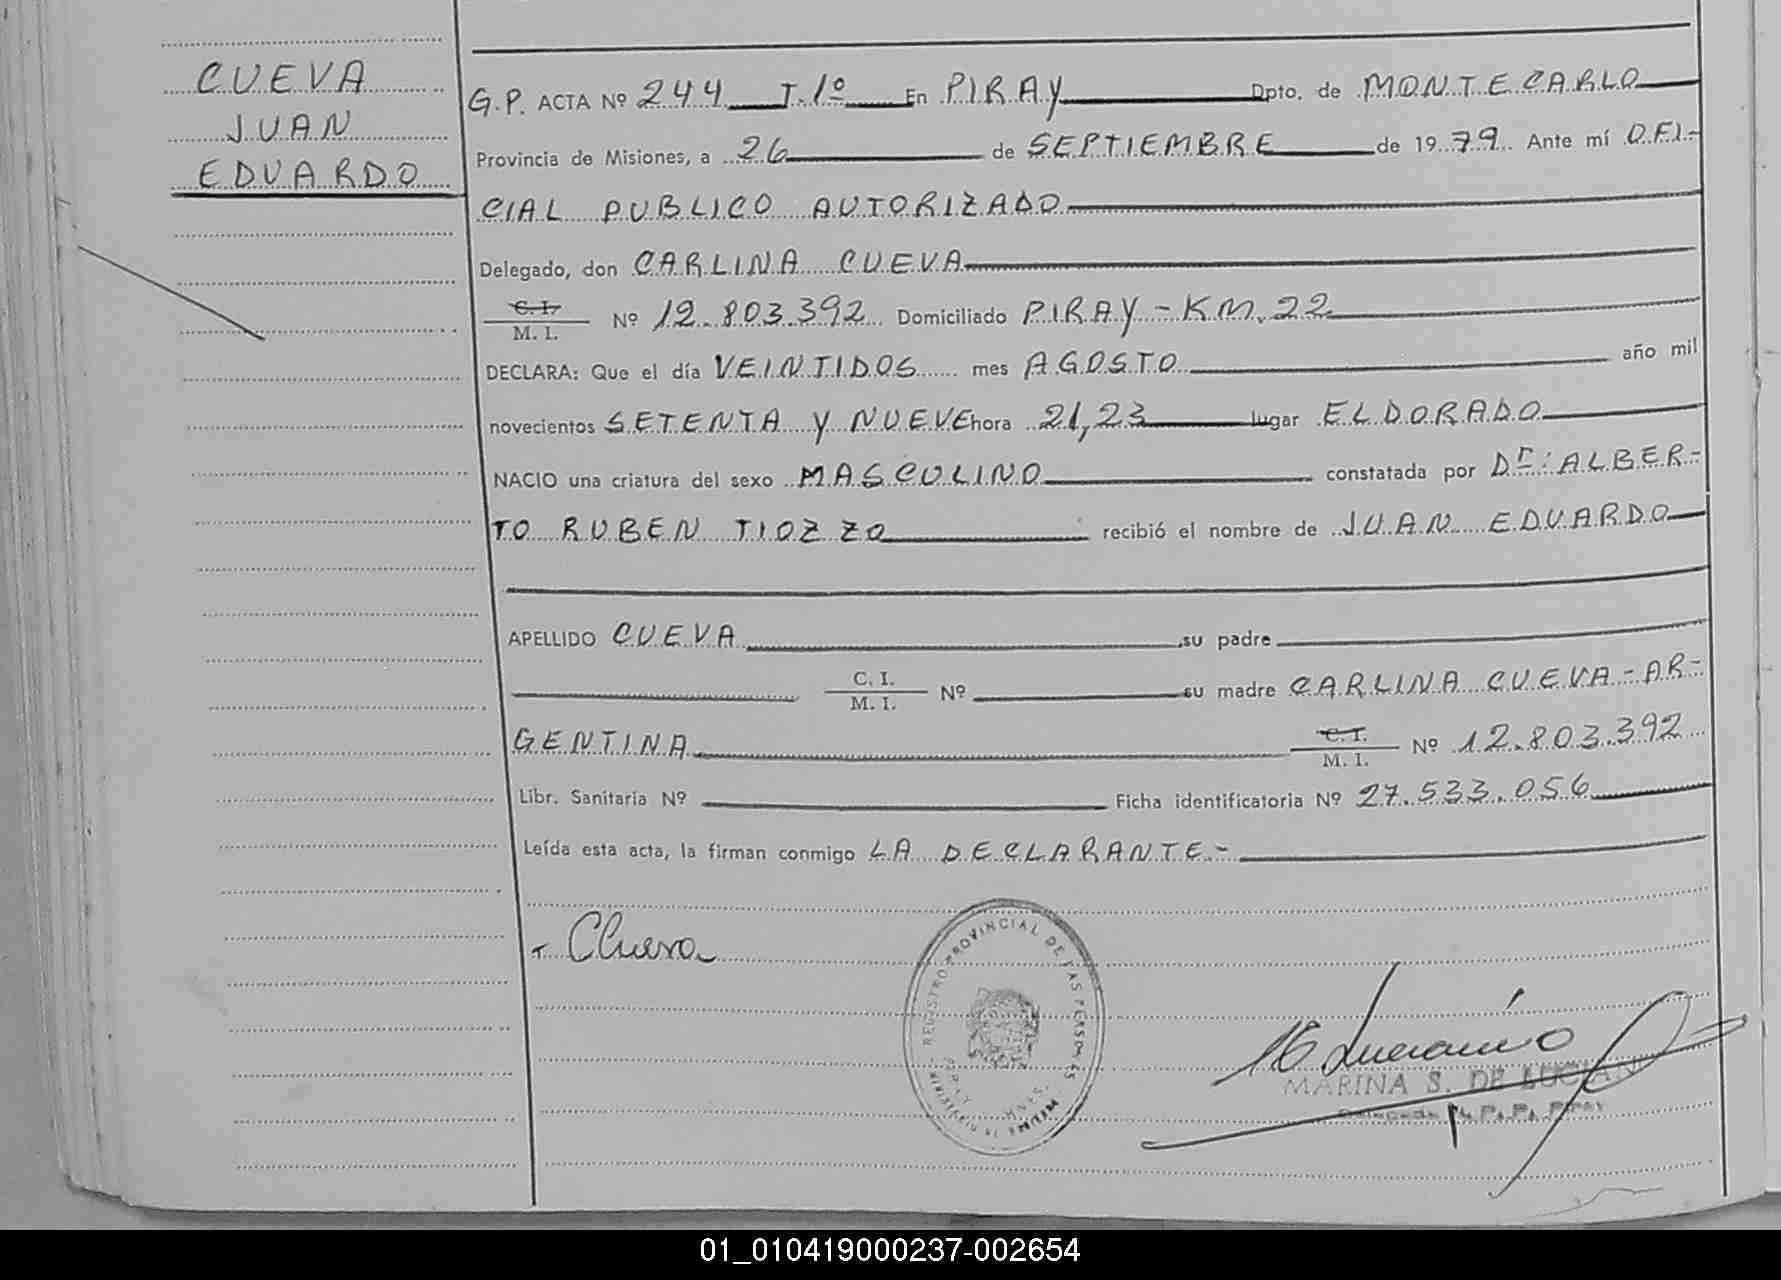 CUEVA
JUAN
EDUARDO
G.P. ACTA Nº 244 T.1º En PIRAY Dpto. de MONTECARLO
Provincia de Misiones, a 26 de SEPTIEMBRE de 1979. Ante mí OFI-
CIAL PUBLICO AUTORIZADO
Delegado, don CARLINA CUEVA
C. I.
M. I. Nº 12.803.392 Domiciliado PIRAY - KM. 22
DECLARA: Que el día VEINTIDOS mes AGOSTO año mil
novecientos SETENTA y NUEVE hora 21,23 lugar ELDORADO
NACIO una criatura del sexo MASCULINO constatada por Dr: ALBER-
TO RUBEN TIOZZO recibió el nombre de JUAN EDUARDO
APELLIDO CUEVA su padre
C. I.
M. I. Nº su madre CARLINA CUEVA - AR-
GENTINA C. I. Nº 12.803.392
M. I.
Libr. Sanitaria Nº Ficha identificatoria Nº 27.533.056
Leída esta acta, la firman conmigo LA DECLARANTE.-
CCueva
REGISTRO PROVINCIAL DE LAS PERSONAS
MARINA S. DE LUCIANI
01_010419000237-002654